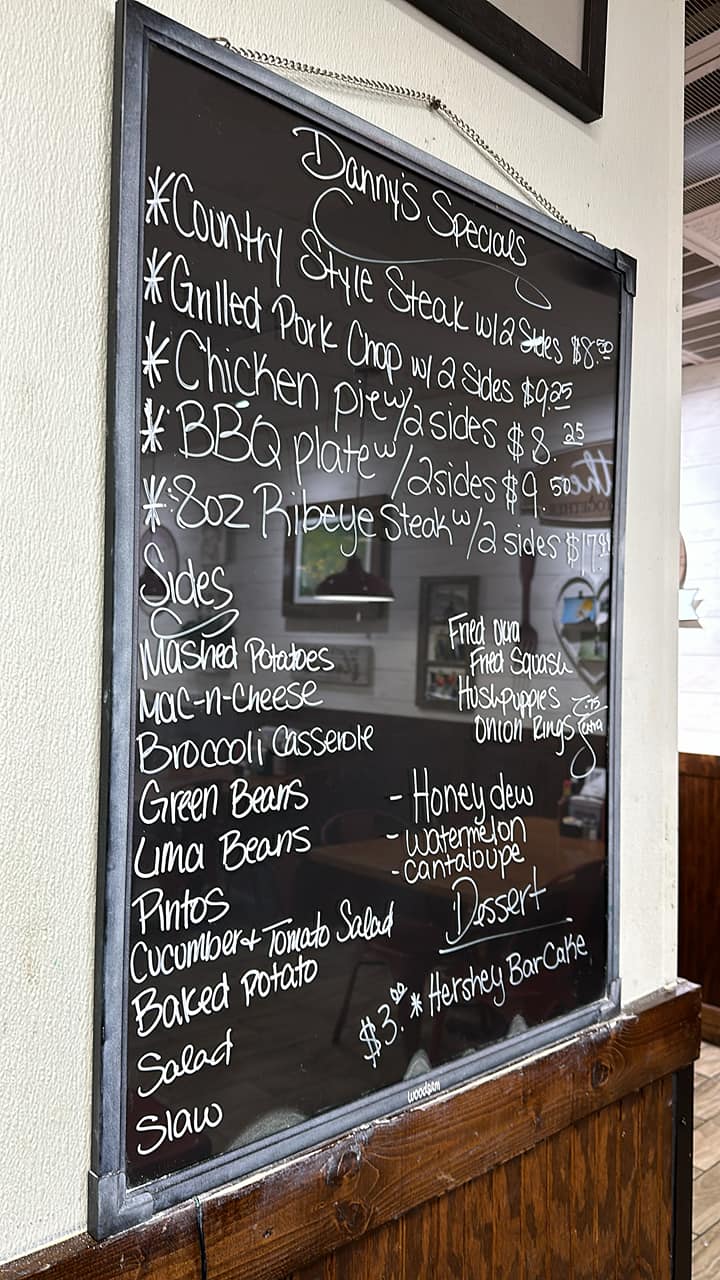 Danny's Specials
*Country Style Steak w/2 Sides $8.50
*Grilled Pork Chop w/ 2 Sides $9.25
*Chicken pie w/2 sides $8.25
*BBQ plate w/2 sides $9.50
*8oz Ribeye Steak w/2 sides
Sides
Mashed Potatoes
Mac-n-Cheese
Broccoli Casserole
Green Beans
Lima Beans
Pintos
Cucumber + Tomato Salad
Baked Potato
Salad
Slaw
Fried Okra
Fried Squash
Hushpuppies
Onion Rings .75 extra
- Honey dew
- Watermelon
- Cantaloupe
Dessert
$3.00 * Hershey Bar Cake
woodsen